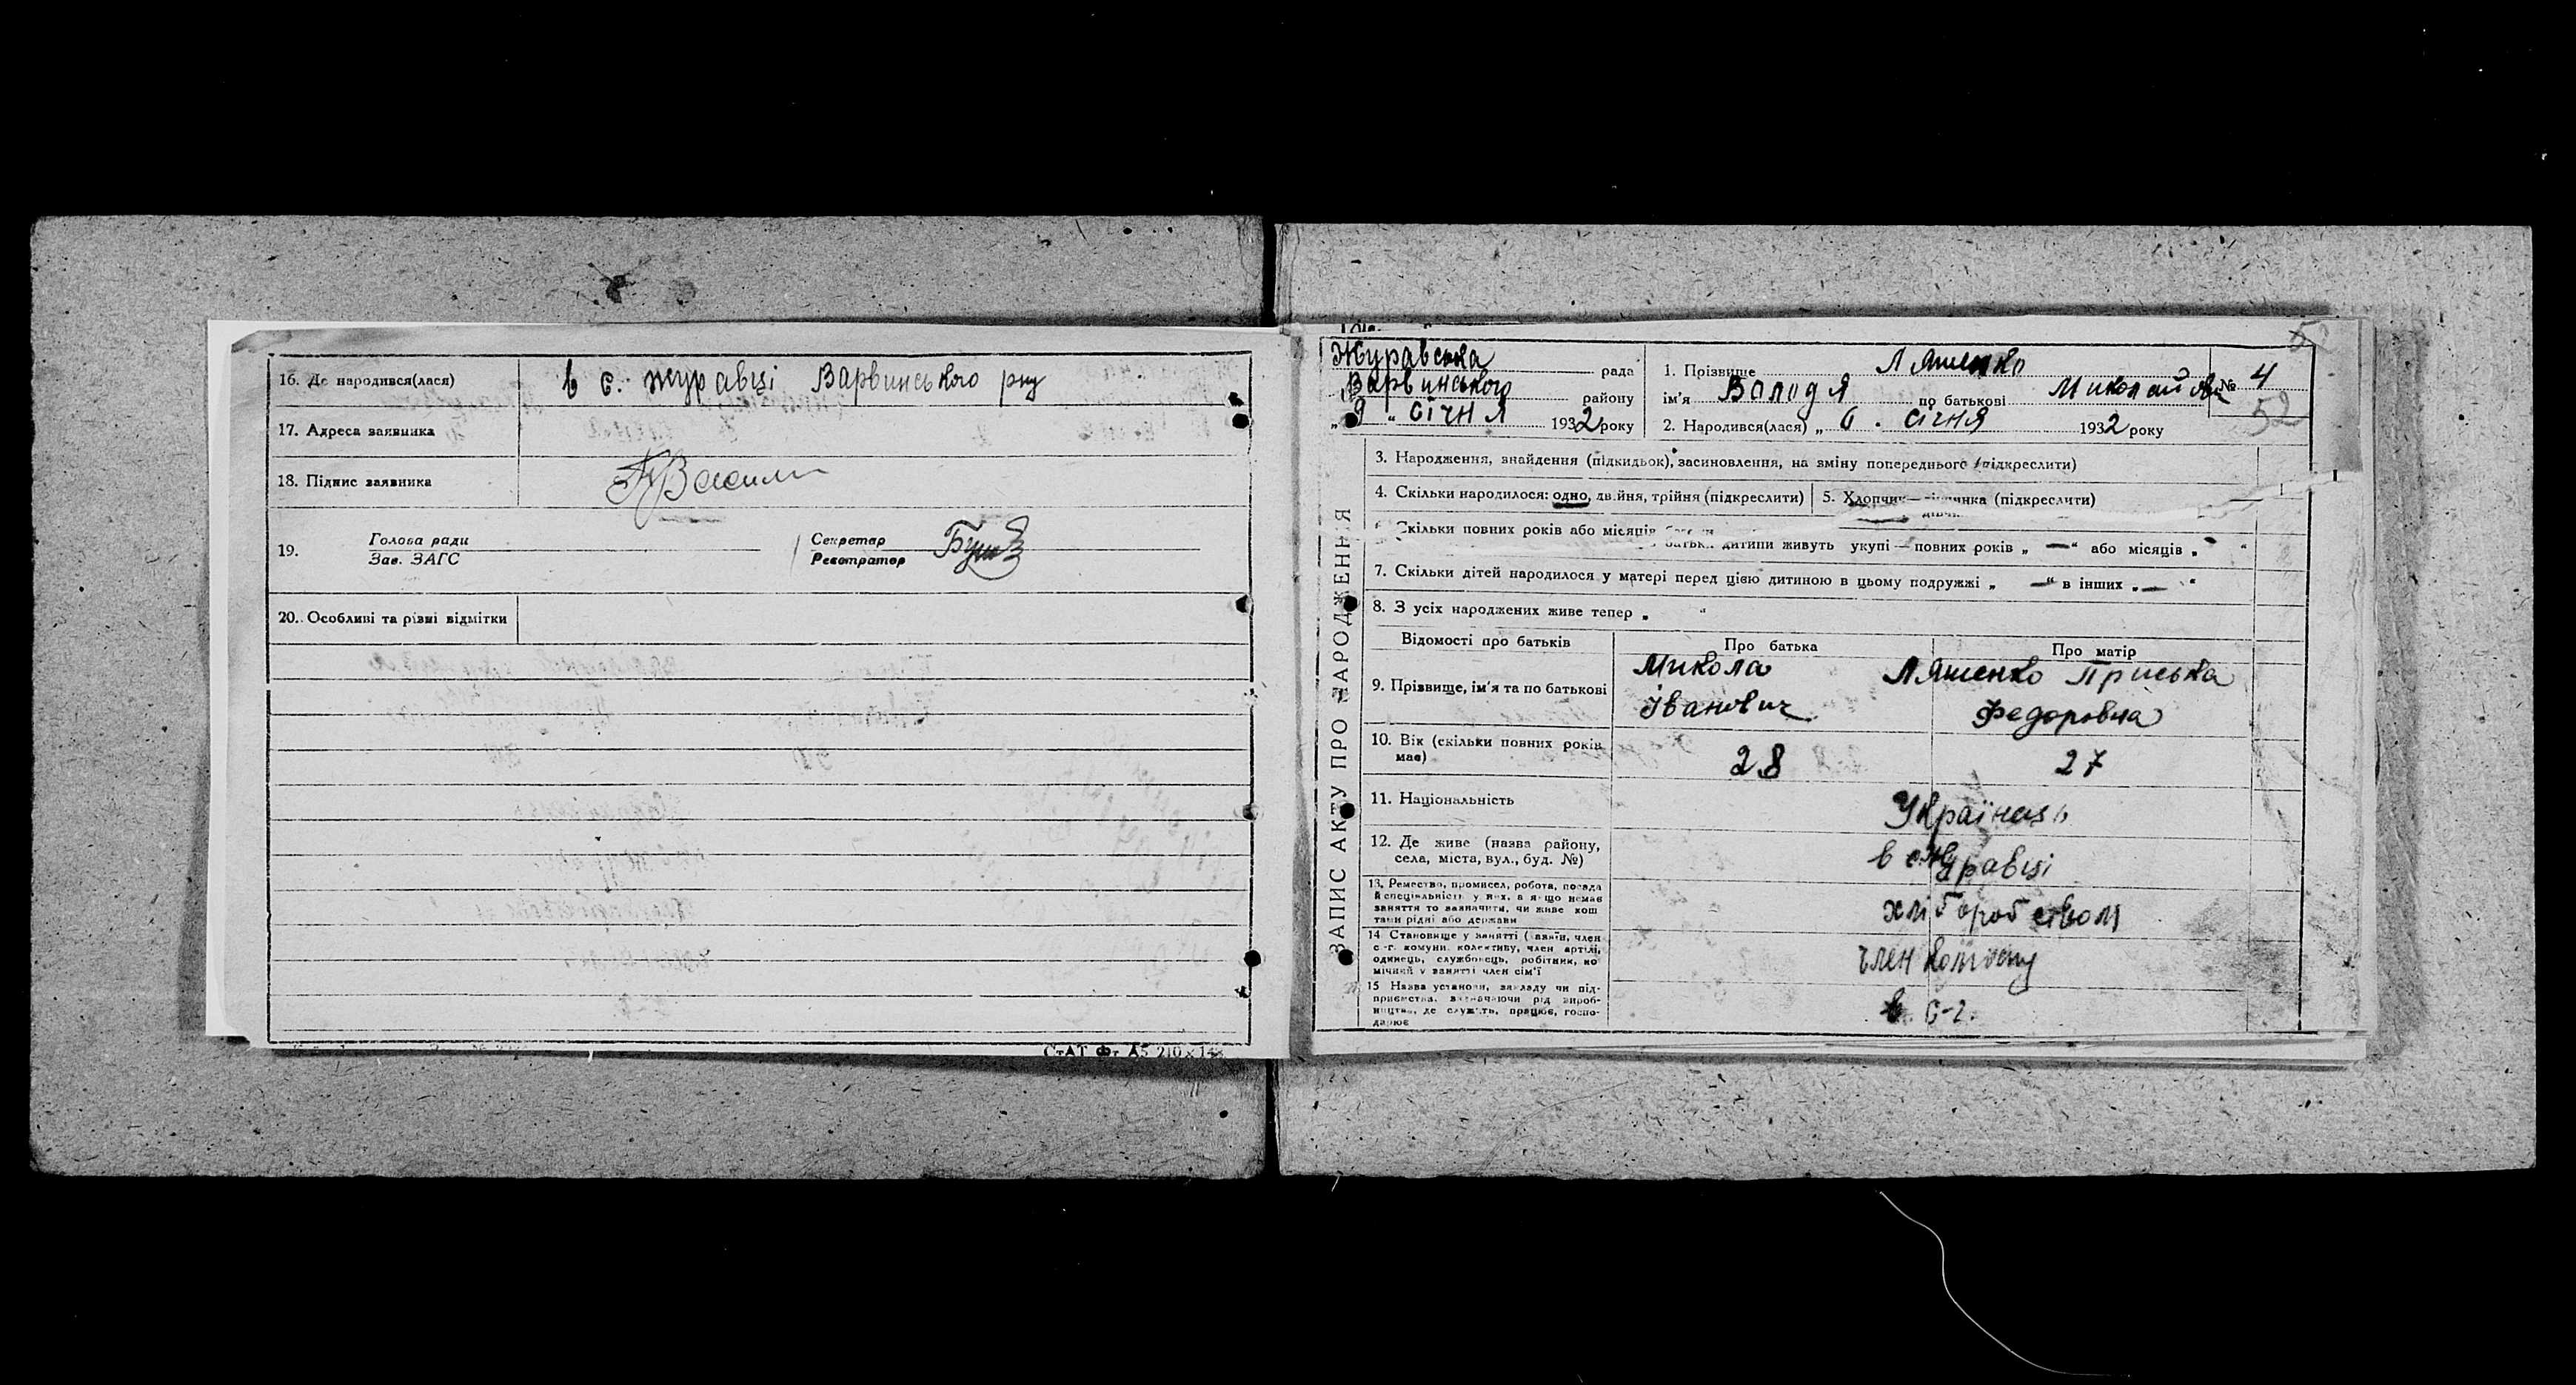 16. Де народився(лася) в с. журавці Варвинського рну
17. Адреса заявника
18. Підпис заявника
19. Голова ради
Зав. ЗАГС
Секретар
Реєстратор
20. Особливі та різні відмітки
СтАТ Фт А5 210х148
ЗАПИС АКТУ ПРО НАРОДЖЕННЯ
Журавська рада
Варвинського району
„9“ січня 1932 року
1. Прізвище Ляшенко
ім'я Володя по батькові Миколайов
2. Народився(лася) „6. січня 1932 року
№ 4
52
52
3. Народження, знайдення (підкидьок), засиновлення, на зміну попереднього (підкреслити)
4. Скільки народилося: одно, двійня, трійня (підкреслити)
5. Хлопчик— (підкреслити)
Скільки повних років або місяців
дитини живуть укупі — повних років „ —“ або місяців „ “
7. Скільки дітей народилося у матері перед цією дитиною в цьому подружжі „ —“ в інших „ — “
8. З усіх народжених живе тепер „ “
Відомості про батьків
Про батька
Про матір
9. Прізвище, ім'я та по батькові
Микола
Іванович
Ляшенко Пріська
Федоровна
10. Вік (скільки повних років
має)
28
27
11. Національність
Українць
12. Де живе (назва району,
села, міста, вул., буд. №)
в с. Журавці
13. Ремество, промисел, робота, посада
й спеціяльність у них, а якщо немає
заняття то зазначити, чи живе кош
тами рідні або держави
хліборобством
14 Становище у занятті (хазяїн, член
с.-г. комуни, колективу, член артілі,
одинець, службовець, робітник, по
мічний у занятті член сім'ї
член колгоспу
15 Назва установи, закладу чи під-
приємства, визначаючи рід вироб-
ництва, де служить, працює, госпо-
дарює
в с-г.